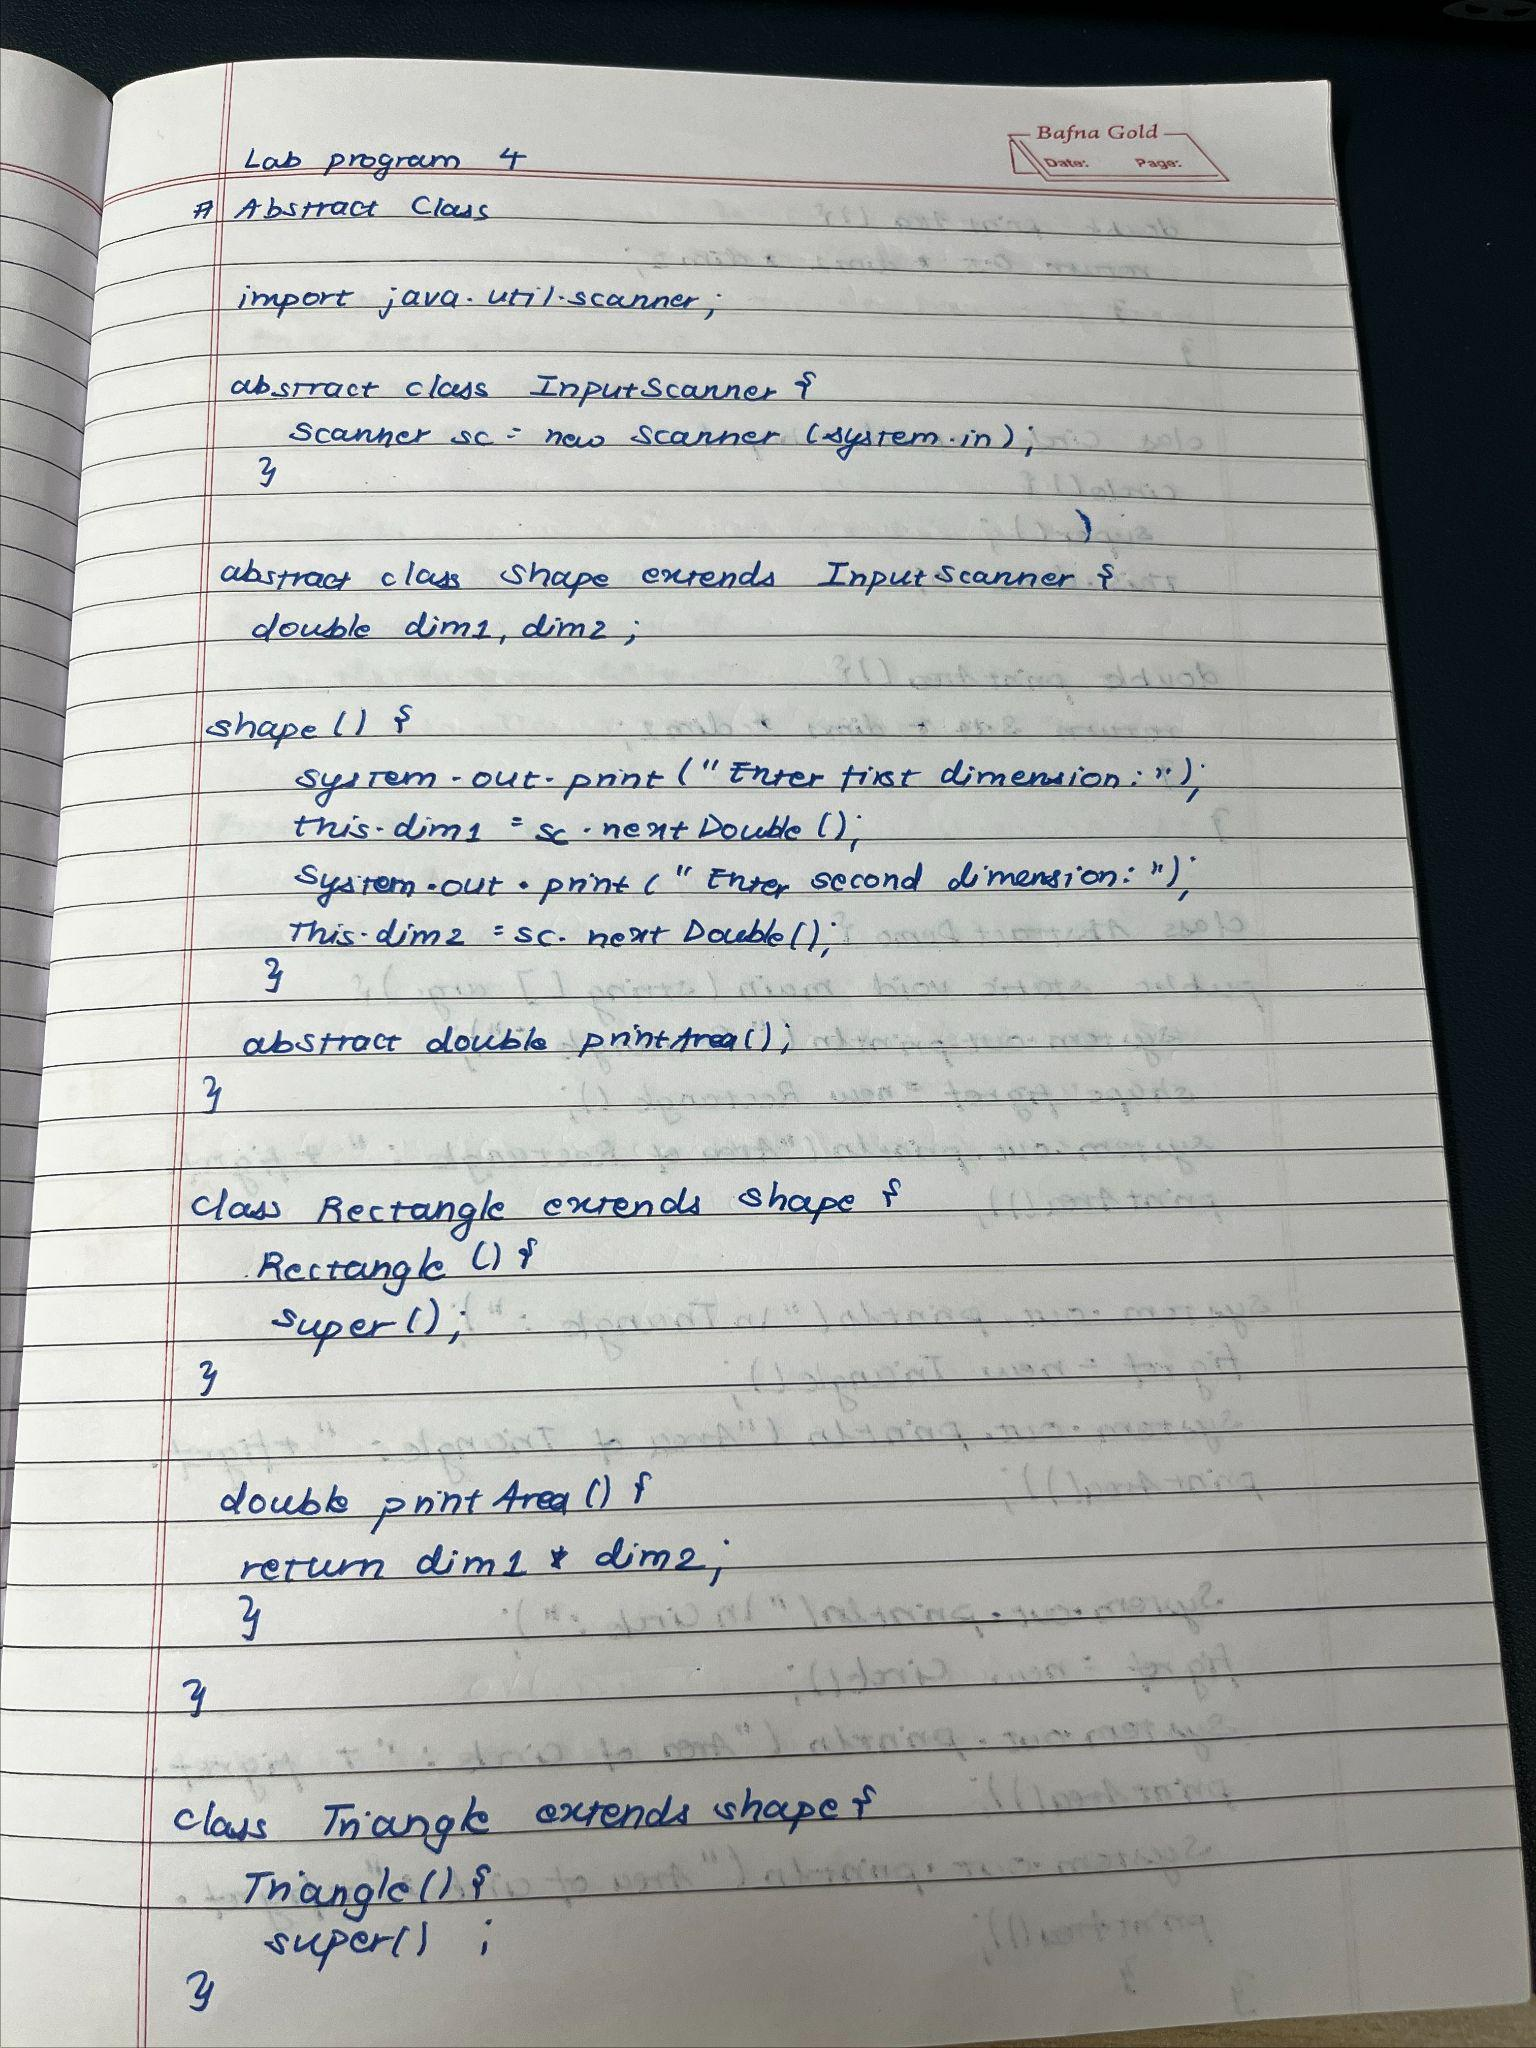 Bafna Gold
Date: Page:
Lab program 4
# Abstract Class
import java.util.scanner;
abstract class InputScanner {
Scanner sc = new Scanner (system.in);
}
)
abstract class Shape extends InputScanner {
double dim1, dim2 ;
shape () {
system.out.print ("Enter first dimension: ");
this.dim1 = sc.nextDouble ();
System.out.print ( " Enter second dimension: ");
This.dim2 = sc. next Double();
}
abstract double printArea();
}
class Rectangle extends shape {
Rectangle () {
super ();
}
double print Area () {
return dim1 * dim2;
}
}
class Triangle extends shape {
Triangle() {
super() ;
}